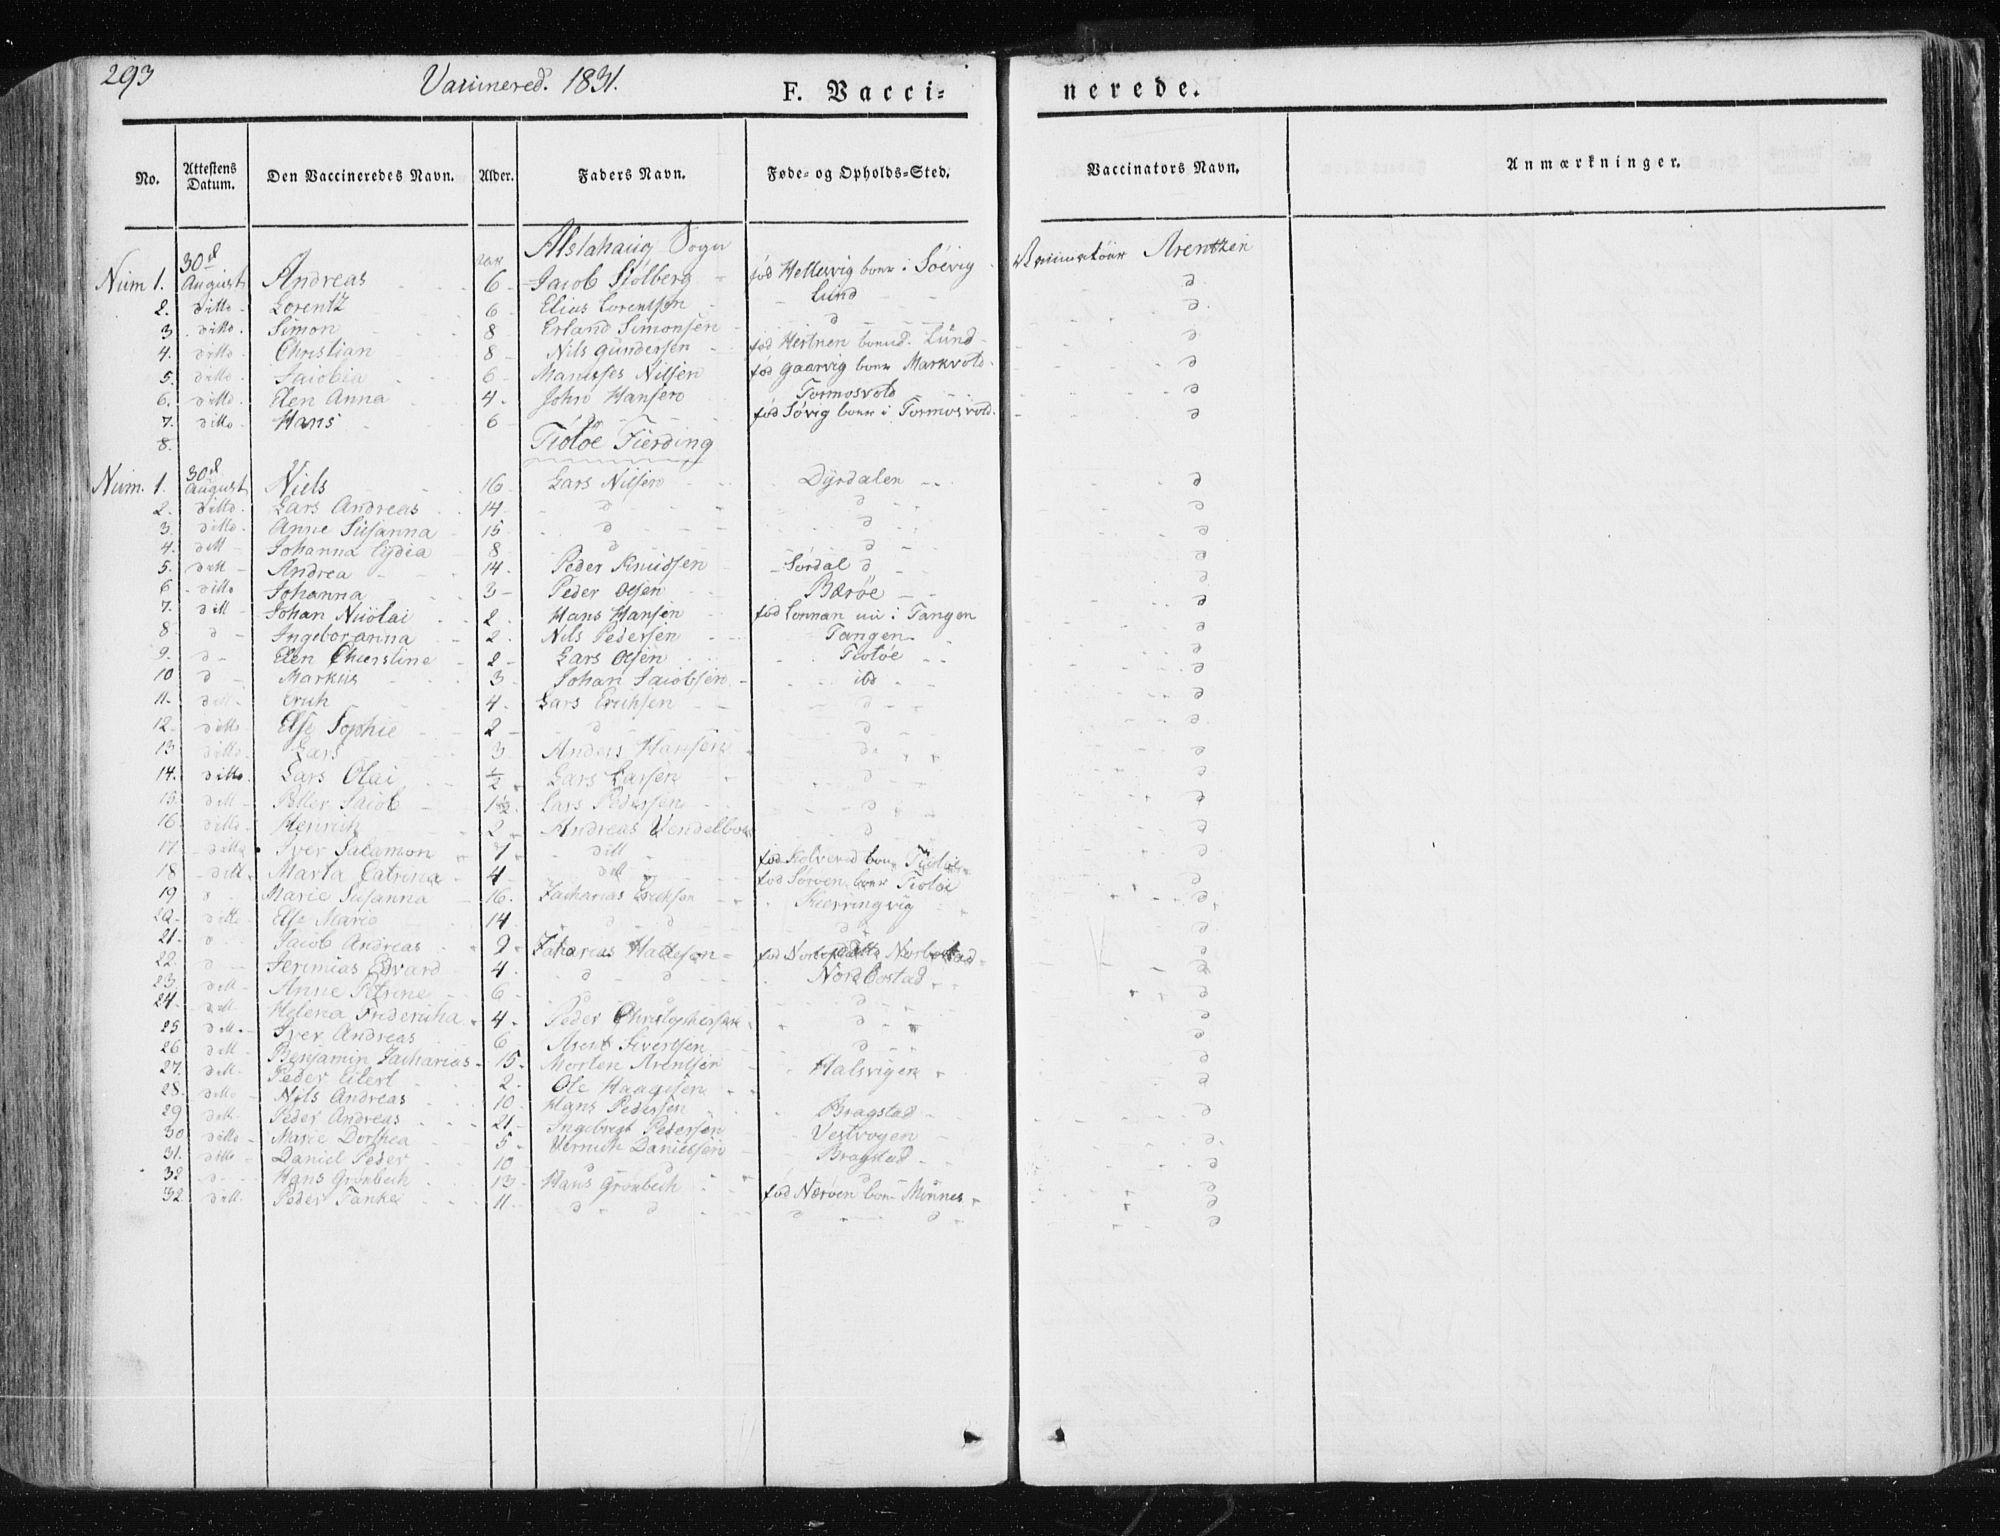 293 Vaccinered. 1831. F. Vacci= nerede.
No. Attestens Datum. Den Vaccineredes Navn. Alder. Faders Navn. Føde- og Opholds-Sted. Vaccinators Navn. Anmærkninger.
Alstahaug Sogn
Num 1. 30d August Andreas 6 Jacob Stolberg fød Hellesvig boer i Söevig Arentzen
2. ditto Lorentz 6 Elias Lorentsen Lund
3. ditto Simon 8 Erland Simonsen d
4. ditto Christian 8 Nils Gundersen fød Hestnen Lund
5. ditto Jacobia 6 Nilsen fød Gaarvig boer Markvold
6. ditto Elen Anna 4 John Hansen Tormosvold
7. ditto Hans 6 d fød Søvig boer i Tormosvold
8. Tiötöe Fierding
Num. 1. 30d August Niels 16 Lars Nilsen Dyrdalen
2. ditto Lars Andreas 14 d d
3. ditto Anne Susanna 15 d d
4. ditt Johanna Lydia 8 d d
5. ditt Andrea 14. Peder Knudsen Sørdal d
6 ditto Johanna 3 Peder Olsen Bærøe
7. ditt Johan Nicolai 2 Hans Hansen fød i Tangen
8. d Ingeboranna 2. Nils Pedersen Tangen
9. d Elen Chierstine 2 Lars Olsen Tiotöe
10 d Markus 3 Johan Jacobsen ibd
11. ditt Erich 4. Lars Erichsen d
12. ditto Else Sophie 2 d d
13 ditto Lars 3 Anders Hansen d
14. ditto. Lars Olai ½ Lars Larsen d
15. ditt Petter Jacob 1½ Lars Pedersen
16. ditto Henrich 2 Andreas Vendelboe d
17. ditto Iver Salamon 7 ditt fød Kolvered boer Tiotöe
18 ditt Marta Catrina 4 ditt fød boer Tiotöe
19 d Marie Susanna 16. Zacharias Erickson Kierringvig
20. ditto Else Marie 14 d d d
21. d Jacob Andreas 9 Zacharias Hattesøn fød
22. d Jerimias Edvard 4. d d Nord Borstad
23. ditt Anne Petrine 6 d d
24. ditt Helena Fridericha 4 Peder Christophersen d
25 ditt Iver Andreas 6 Arent Sivertsen d
26 ditt Benjamin Zacharias 15. Morten Arentsen Halsvigen
27. ditt Peder Eilert 2. Ole Haagesen
28. ditto Nils Andreas 10 Hans Pedersen Bragstad
29 ditt Peder Andreas 21 Ingebrigt Pedersen Vestvogen
30 ditto Marie Dorthea 5 Henrich Danielsen Bragstad
31. ditto Daniel Peder 10 d d
32 d Hans Grønbech 13 Hans Grønbech fød Nærøen boer Minnes
32. ditt Peder Tanke 11 d d d d